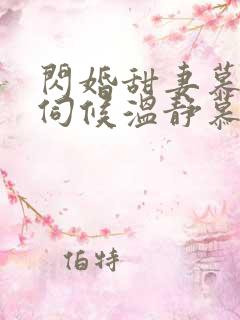 閃婚甜妻慕
伺候溫靜慕
伯特